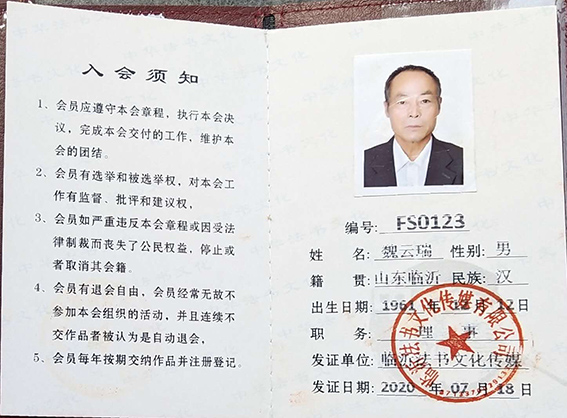 入会须知
1、会员应遵守本会章程，执行本会决
议，完成本会交付的工作、维护本
会的团结。
2、会员有选举和被选举权，对本会工
作有监督、批评和建议权，
3、会员如严重违反本会章程或因受法
律制裁而丧失了公民权益，停止或
者取消其会籍。
4、会员有退会自由，会员经常无故不
参加本会组织的活动，并且连续不
交作品者被认为是自动退会，
5、会员每年按期交纳作品并注册登记。
编号: FS0123
姓 名: 魏云瑞 性别: 男
籍 贯: 山东临沂 民族: 汉
出生日期: 1961年12月12日
职 务: 理事
发证单位: 临沂法书文化传媒
发证日期: 2020年07月18日
临沂法书文化传媒有限公司